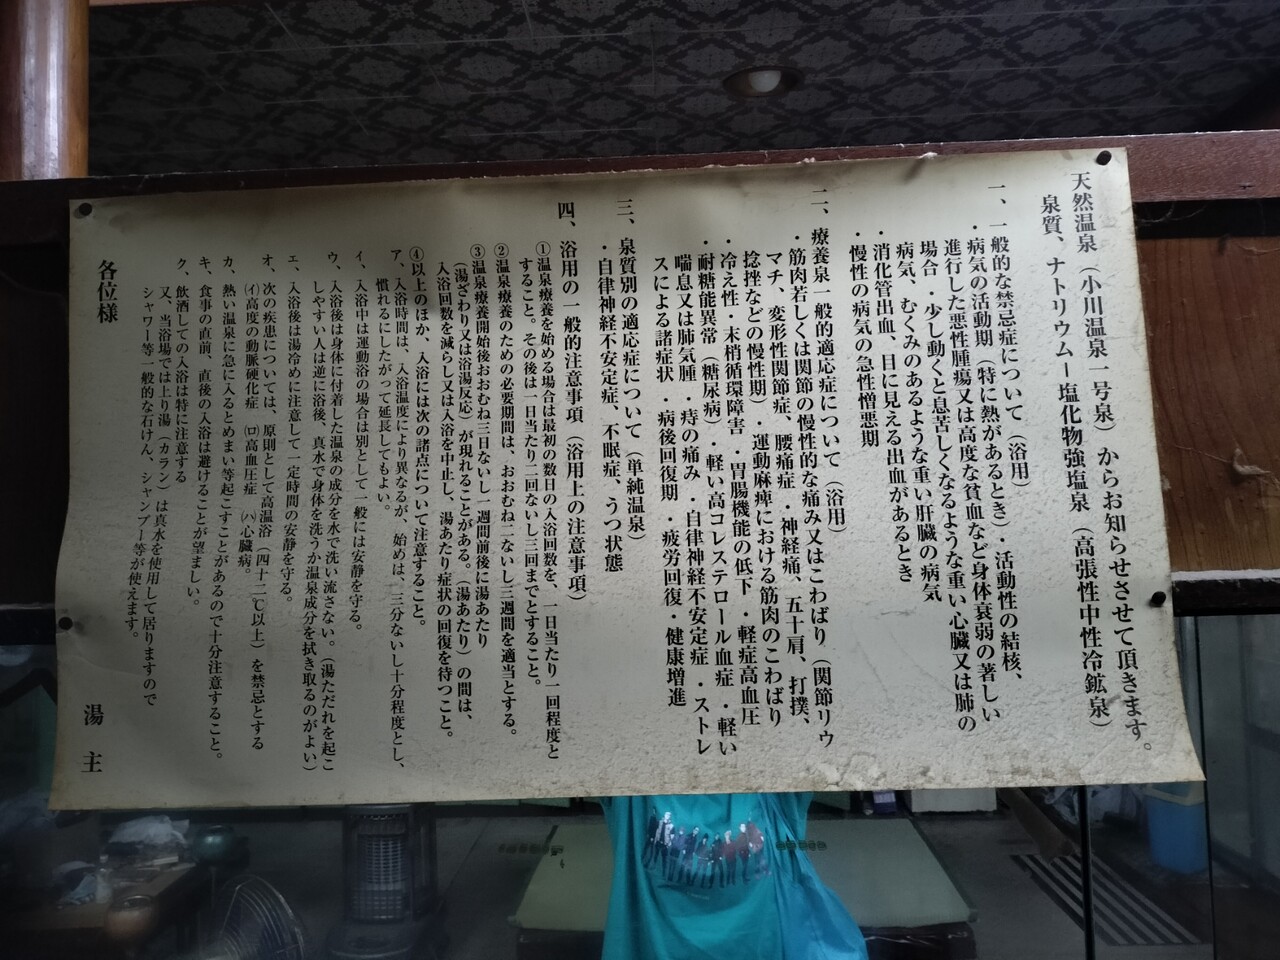 天然温泉（小川温泉一号泉）からお知らせさせて頂きます。
泉質、ナトリウム－塩化物強塩泉（高張性中性冷鉱泉）
一、一般的な禁忌症について（浴用）
・病気の活動期（特に熱があるとき）・活動性の結核、
進行した悪性腫瘍又は高度な貧血など身体衰弱の著しい
場合・少し動くと息苦しくなるような重い心臓又は肺の
病気、むくみのあるような重い肝臓の病気
・消化管出血、目に見える出血があるとき
・慢性の病気の急性憎悪期
二、療養泉一般的適応症について（浴用）
・筋肉若しくは関節の慢性的な痛み又はこわばり（関節リウ
マチ、変形性関節症、腰痛症・神経痛、五十肩、打撲、
捻挫などの慢性期）・運動麻痺における筋肉のこわばり
・冷え性・末梢循環障害・胃腸機能の低下・軽症高血圧
・耐糖能異常（糖尿病）・軽い高コレステロール血症・軽い
喘息又は肺気腫・痔の痛み・自律神経不安定症・ストレ
スによる諸症状・病後回復期・疲労回復・健康増進
三、泉質別の適応症について（単純温泉）
・自律神経不安定症、不眠症、うつ状態
四、浴用の一般的注意事項（浴用上の注意事項）
①温泉療養を始める場合は最初の数日の入浴回数を、一日当たり一回程度と
すること。その後は一日当たり二回ないし三回までとすること。
②温泉療養のための必要期間は、おおむね二ないし三週間を適当とする。
③温泉療養開始後おおむね三日ないし一週間前後に湯あたり
（湯ざわり又は浴湯反応）が現れることがある。（湯あたり）の間は、
入浴回数を減らし又は入浴を中止し、湯あたり症状の回復を待つこと。
④以上のほか、入浴には次の諸点について注意すること。
ア、入浴時間は、入浴温度により異なるが、始めは、三分ないし十分程度とし、
慣れるにしたがって延長してもよい。
イ、入浴中は運動浴の場合は別として一般には安静を守る。
ウ、入浴後は身体に付着した温泉の成分を水で洗い流さない。（湯ただれを起こ
しやすい人は逆に浴後、真水で身体を洗うか温泉成分を拭き取るのがよい）
エ、入浴後は湯冷めに注意して一定時間の安静を守る。
オ、次の疾患については、原則として高温浴（四十二℃以上）を禁忌とする
㈑高度の動脈硬化症　㈺高血圧症　㈩心臓病。
カ、熱い温泉に急に入るとめまい等起こすことがあるので十分注意すること。
キ、食事の直前、直後の入浴は避けることが望ましい。
ク、飲酒しての入浴は特に注意する
又、当浴場では上り湯（カラン）は真水を使用して居りますので
シャワー等一般的な石けん、シャンプー等が使えます。
各位様
湯　主